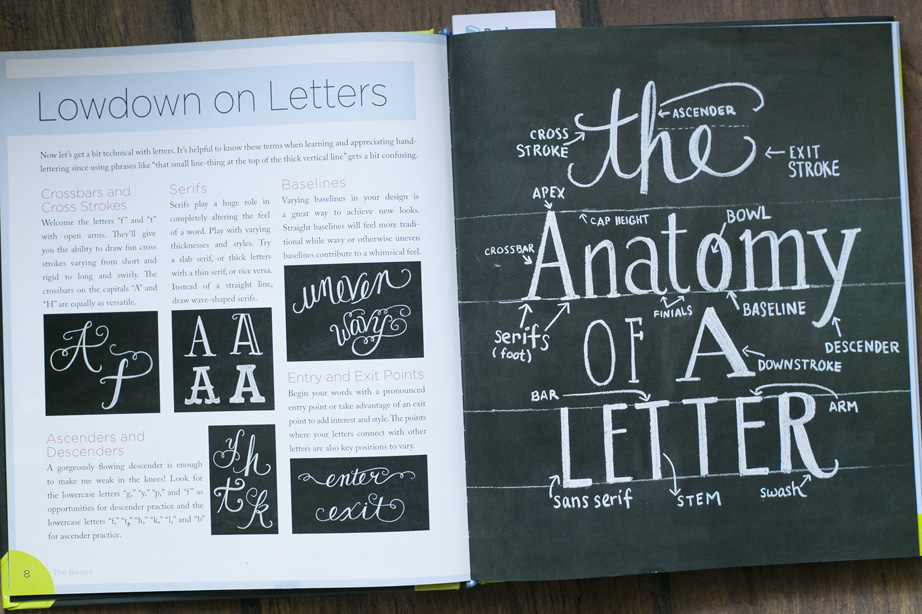 Lowdown on Letters
Now let's get a bit technical with letters. It's helpful to know these terms when learning and appreciating hand-
lettering since using phrases like "that small line-thing at the top of the thick vertical line" gets a bit confusing.
Crossbars and
Cross Strokes
Welcome the letters "f" and "t"
with open arms. They'll give
you the ability to draw fun cross
strokes varying from short and
rigid to long and swirly. The
crossbars on the capitals "A" and
"H" are equally as versatile.
A
f
Serifs
Serifs play a huge role in
completely altering the feel
of a word. Play with varying
thicknesses and styles. Try
a slab serif, or thick letters
with a thin serif, or vice versa.
Instead of a straight line,
draw wave-shaped serifs.
A A
A A
Baselines
Varying baselines in your design is
a great way to achieve new looks.
Straight baselines will feel more tradi-
tional while wavy or otherwise uneven
baselines contribute to a whimsical feel.
uneven
wavy
Ascenders and
Descenders
A gorgeously flowing descender is enough
to make me weak in the knees! Look for
the lowercase letters "g," "y," "p," and "f" as
opportunities for descender practice and the
lowercase letters "f," "t," "h," "k," "l," and "b"
for ascender practice.
y h
t k
Entry and Exit Points
Begin your words with a pronounced
entry point or take advantage of an exit
point to add interest and style. The points
where your letters connect with other
letters are also key positions to vary.
enter
exit
8 The Basics
the
ASCENDER
CROSS
STROKE
EXIT
STROKE
APEX
CAP HEIGHT
BOWL
CROSSBAR
Anatomy
serifs
(foot)
FINIALS
BASELINE
DESCENDER
OF A
DOWNSTROKE
BAR
ARM
LETTER
sans serif
STEM
swash